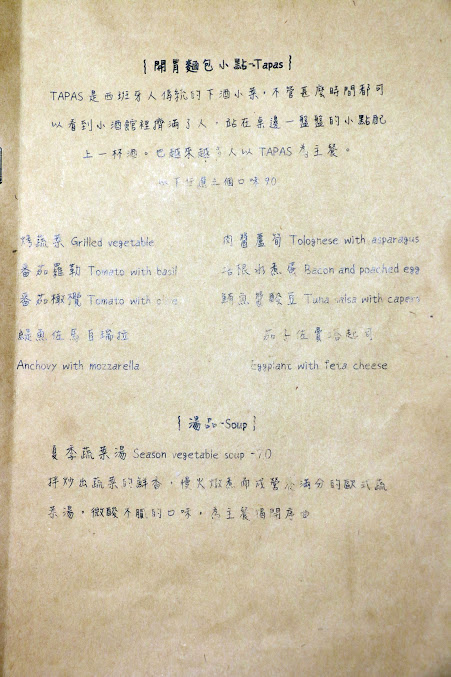 { 開胃麵包小點-Tapas }
TAPAS 是西班牙人傳統的下酒小菜,不管甚麼時間都可
以看到小酒館裡擠滿了人,站在桌邊一盤盤的小點配
上一杯酒。也越來越多人以 TAPAS 為主餐。
以下任選三個口味 90
烤蔬菜 Grilled vegetable
肉醬蘆筍 Tolognese with asparagus
番茄羅勒 Tomato with basil
培根水煮蛋 Bacon and poached egg
番茄橄欖 Tomato with olive
鮪魚醬酸豆 Tuna salsa with capers
鯷魚佐馬自瑞拉
茄子佐費塔起司
Anchovy with mozzarella
Eggplant with feta cheese
{ 湯品-Soup }
夏季蔬菜湯 Season vegetable soup -70
拌炒出蔬菜的鮮香,慢火燉煮而成營養滿分的歐式蔬
菜湯,微酸不膩的口味,為主餐揭開序曲